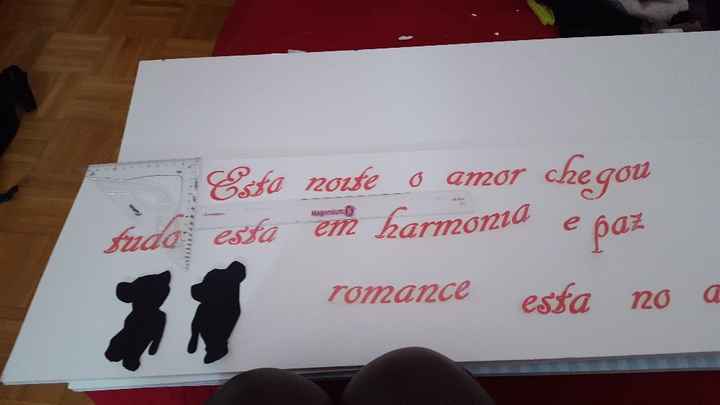 Esta noite o amor chegou
Magenium
tudo esta em harmonia e paz
romance esta no